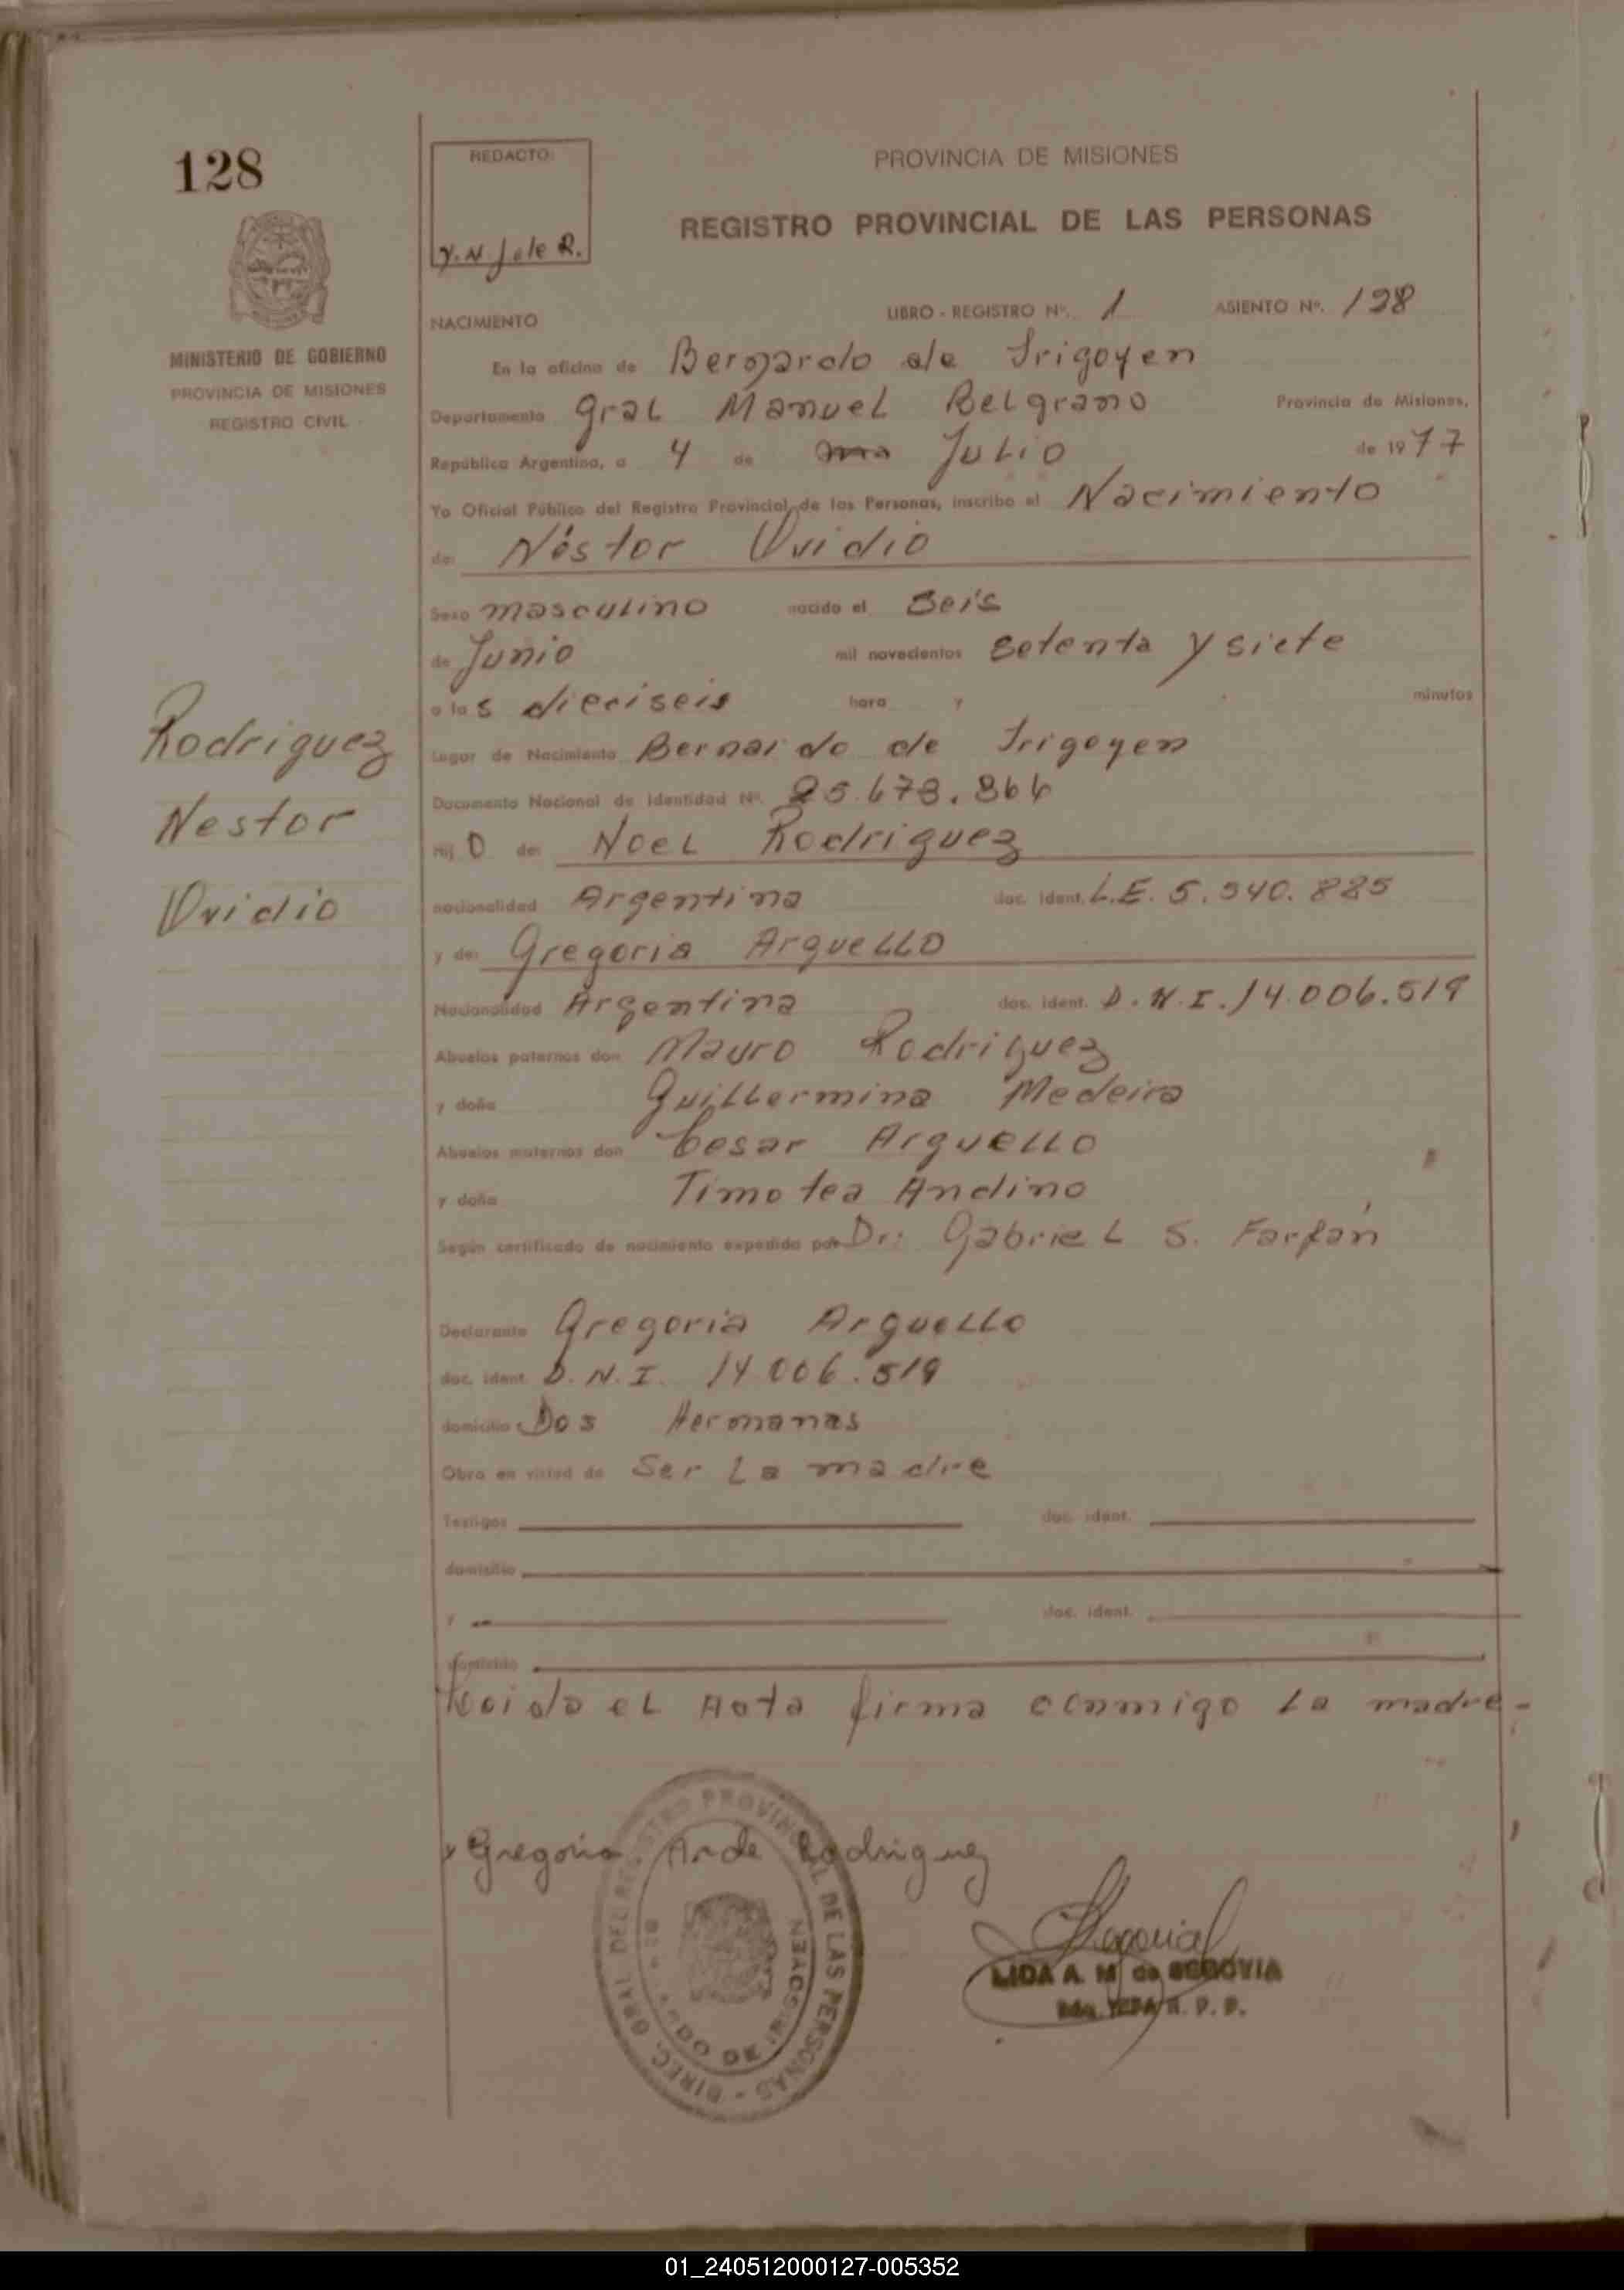 128
MINISTERIO DE GOBIERNO
PROVINCIA DE MISIONES
REGISTRO CIVIL
Rodriguez
Nestor
Ovidio
REDACTO:
PROVINCIA DE MISIONES
REGISTRO PROVINCIAL DE LAS PERSONAS
NACIMIENTO LIBRO - REGISTRO Nº. 1 ASIENTO Nº. 128
En la oficina de Bernardo de Irigoyen
Departamento Gral Manuel Belgrano Provincia de Misiones,
República Argentina, a 4 de Julio de 1977
Yo Oficial Público del Registro Provincial de las Personas, inscribo el Nacimiento
de: Néstor Ovidio
Sexo masculino nacido el Seis
de Junio mil novecientos setenta y siete
a las dieciseis hora y minutos
Lugar de Nacimiento Bernardo de Irigoyen
Documento Nacional de Identidad Nº. 25.673.866
Hij O de: Noel Rodriguez
nacionalidad Argentina doc. ident. L.E. 5.540.885
y de: Gregoria Arguello
Nacionalidad Argentina doc. ident. D.N.I. 14.006.519
Abuelos paternos don Mauro Rodriguez
y doña Guillermina Medeira
Abuelos maternos don Cesar Arguello
y doña Timotea Andino
Según certificado de nacimiento expedido por Dr: Gabriel S. Farfán
Declarante Gregoria Arguello
doc. ident. D.N.I. 14.006.519
domicilio Dos Hermanas
Obra en virtud de Ser la madre
Testigos doc. ident.
domicilio
y doc. ident.
domicilio
Leida el Acta firma conmigo la madre-
Gregoria Rodriguez
DIREC. GRAL. DEL REGISTRO PROVINCIAL DE LAS PERSONAS
LIDA A. M. de SEGOVIA
01_240512000127-005352